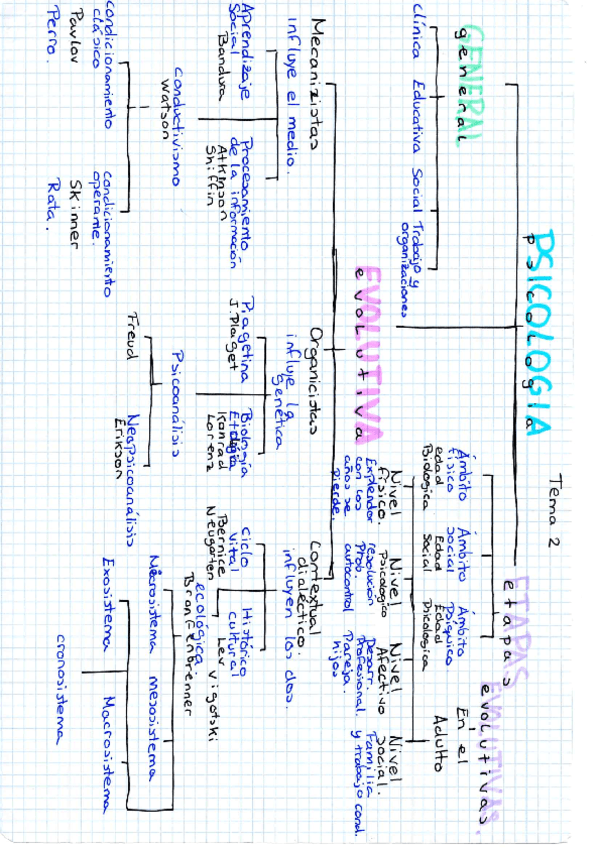 Tema 2
PSICOLOGIA
psicologia
GENERAL
general
clínica
Educativa
Social
Trabajo y
organizaciones
EVOLUTIVA
evolutiva
Mecanizistas
influye el medio.
Aprendizaje
Social
Bandura
Procesamiento
de la información
Atkinson
Shiffin
Conductivismo
Watson
Condicionamiento
clásico
Pavlov
Perro.
Condicionamiento
operante.
Skinner
Rata.
Organicistas
influje la
genética
Piagetina
J. Piaget
Biología
Etología
Konrad
Lorenz
Psicoanálisis
Freud
Neapsicoanálisis
Erikson
Contextual
dialéctico.
influyen los dos.
Ciclo
vital
Bernice
Neugarten
Histórico
cultural
Lev Vigotski
ecológica
Bronfenbrenner
Microsistema
mesosistema
Exosistema
Macrosistema
cronosistema
ETAPAS EVOLUTIVAS
etapas evolutivas.
Ámbito
físico
edad
Biologica
Ámbito
social
Edad
Social
Ámbito
Psíquico
Edad
Psicologica
En el
Adulto
Nivel
físico.
Explendor
con los
años se
pierde.
Nivel
Psicologico
resolucion
Prob.
autocontrol
Nivel
Afectivo
Desarr.
Profesional.
Pareja.
hijos
Nivel
Social.
Familia
y trabajo cond.